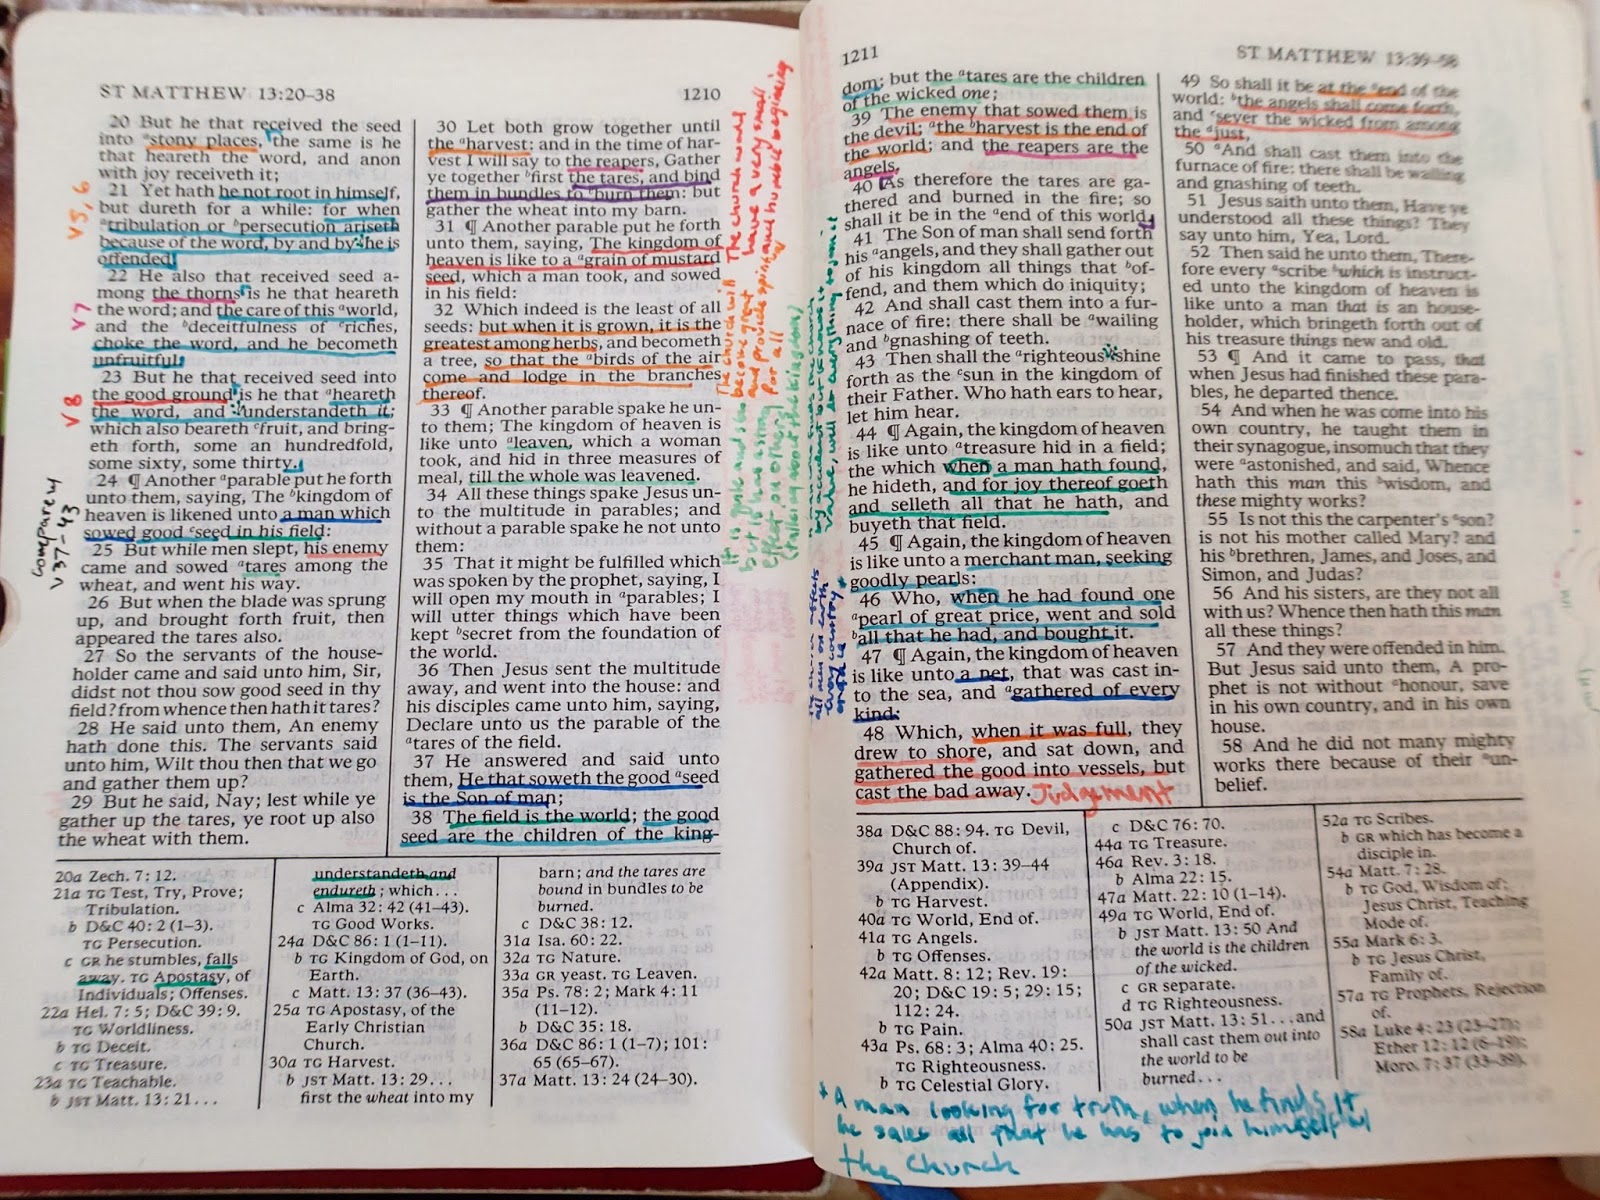 ST MATTHEW 13:20–38
1210
20 But he that received the seed
into ᵃstony places, the same is he
that heareth the word, and anon
with joy receiveth it;
21 Yet hath he not root in himself,
but dureth for a while: for when
ᵃtribulation or ᵇpersecution ariseth
because of the word, by and by ᶜhe is
offended.
22 He also that received seed a-
mong the thorns is he that heareth
the word; and the care of this ᵃworld,
and the ᵇdeceitfulness of ᶜriches,
choke the word, and he becometh
unfruitful.
23 But he that received seed into
the good ground is he that ᵃheareth
the word, and ᵇunderstandeth it;
which also beareth ᶜfruit, and bring-
eth forth, some an hundredfold,
some sixty, some thirty.
24 ¶ Another ᵃparable put he forth
unto them, saying, The ᵇkingdom of
heaven is likened unto a man which
sowed good ᶜseed in his field:
25 But while men slept, his enemy
came and sowed ᵃtares among the
wheat, and went his way.
26 But when the blade was sprung
up, and brought forth fruit, then
appeared the tares also.
27 So the servants of the house-
holder came and said unto him, Sir,
didst not thou sow good seed in thy
field? from whence then hath it tares?
28 He said unto them, An enemy
hath done this. The servants said
unto him, Wilt thou then that we go
and gather them up?
29 But he said, Nay; lest while ye
gather up the tares, ye root up also
the wheat with them.
V5,6
V7
V8
compare w/
V37-43
30 Let both grow together until
the ᵃharvest: and in the time of har-
vest I will say to the reapers, Gather
ye together ᵇfirst the tares, and bind
them in bundles to ᶜburn them: but
gather the wheat into my barn.
31 ¶ Another parable put he forth
unto them, saying, The kingdom of
heaven is like to a ᵃgrain of mustard
seed, which a man took, and sowed
in his field:
32 Which indeed is the least of all
seeds: but when it is grown, it is the
greatest among herbs, and becometh
a tree, so that the ᵃbirds of the air
come and lodge in the branches
thereof.
33 ¶ Another parable spake he un-
to them; The kingdom of heaven is
like unto ᵃleaven, which a woman
took, and hid in three measures of
meal, till the whole was leavened.
34 All these things spake Jesus un-
to the multitude in parables; and
without a parable spake he not unto
them:
35 That it might be fulfilled which
was spoken by the prophet, saying, I
will open my mouth in ᵃparables; I
will utter things which have been
kept ᵇsecret from the foundation of
the world.
36 Then Jesus sent the multitude
away, and went into the house: and
his disciples came unto him, saying,
Declare unto us the parable of the
ᵃtares of the field.
37 He answered and said unto
them, He that soweth the good ᵃseed
is the Son of man;
38 The field is the world; the good
seed are the children of the king-
The church would
have a very small
and humble beginning
The church will
become great
and provide spirit
for all
20a Zech. 7:12.
21a TG Test, Try, Prove;
Tribulation.
b D&C 40:2 (1–3).
TG Persecution.
c GR he stumbles, falls
away. TG Apostasy, of
Individuals; Offenses.
22a Hel. 7:5; D&C 39:9.
TG Worldliness.
b TG Deceit.
c TG Treasure.
23a TG Teachable.
b JST Matt. 13:21...
understandeth and
endureth; which...
c Alma 32:42 (41–43).
TG Good Works.
24a D&C 86:1 (1–11).
b TG Kingdom of God, on
Earth.
c Matt. 13:37 (36–43).
25a TG Apostasy, of the
Early Christian
Church.
30a TG Harvest.
b JST Matt. 13:29...
first the wheat into my
barn; and the tares are
bound in bundles to be
burned.
c D&C 38:12.
31a Isa. 60:22.
32a TG Nature.
33a GR yeast. TG Leaven.
35a Ps. 78:2; Mark 4:11
(11–12).
b D&C 35:18.
36a D&C 86:1 (1–7); 101:
65 (65–67).
37a Matt. 13:24 (24–30).
1211
ST MATTHEW 13:39–58
dom; but the ᵃtares are the children
of the wicked one;
39 The enemy that sowed them is
the devil; ᵃthe ᵇharvest is the end of
the world; and the reapers are the
angels.
40 As therefore the tares are ga-
thered and burned in the fire; so
shall it be in the ᵃend of this world.
41 The Son of man shall send forth
his ᵃangels, and they shall gather out
of his kingdom all things that ᵇof-
fend, and them which do iniquity;
42 And shall cast them into a fur-
nace of fire: there shall be ᵃwailing
and ᵇgnashing of teeth.
43 Then shall the ᵃrighteous ᵇshine
forth as the ᶜsun in the kingdom of
their Father. Who hath ears to hear,
let him hear.
44 ¶ Again, the kingdom of heaven
is like unto ᵃtreasure hid in a field;
the which when a man hath found,
he hideth, and for joy thereof goeth
and selleth all that he hath, and
buyeth that field.
45 ¶ Again, the kingdom of heaven
is like unto a merchant man, seeking
goodly pearls:
46 Who, when he had found one
ᵃpearl of great price, went and sold
ᵇall that he had, and bought it.
47 ¶ Again, the kingdom of heaven
is like unto a net, that was cast in-
to the sea, and ᵃgathered of every
kind:
48 Which, when it was full, they
drew to shore, and sat down, and
gathered the good into vessels, but
cast the bad away. Judgement
49 So shall it be at the ᵃend of the
world: ᵇthe angels shall come forth,
and ᶜsever the wicked from among
the ᵈjust,
50 ᵃAnd shall cast them into the
furnace of fire: there shall be wailing
and gnashing of teeth.
51 Jesus saith unto them, Have ye
understood all these things? They
say unto him, Yea, Lord.
52 Then said he unto them, There-
fore every ᵃscribe ᵇwhich is instruct-
ed unto the kingdom of heaven is
like unto a man that is an house-
holder, which bringeth forth out of
his treasure things new and old.
53 ¶ And it came to pass, that
when Jesus had finished these para-
bles, he departed thence.
54 And when he was come into his
own country, he taught them in
their synagogue, insomuch that they
were ᵃastonished, and said, Whence
hath this man this ᵇwisdom, and
these mighty works?
55 Is not this the carpenter's ᵃson?
is not his mother called Mary? and
his ᵇbrethren, James, and Joses, and
Simon, and Judas?
56 And his sisters, are they not all
with us? Whence then hath this man
all these things?
57 And they were offended in him.
But Jesus said unto them, A pro-
phet is not without ᵃhonour, save
in his own country, and in his own
house.
58 And he did not many mighty
works there because of their ᵃun-
belief.
38a D&C 88:94. TG Devil,
Church of.
39a JST Matt. 13:39–44
(Appendix).
b TG Harvest.
40a TG World, End of.
41a TG Angels.
b TG Offenses.
42a Matt. 8:12; Rev. 19:
20; D&C 19:5; 29:15;
112:24.
b TG Pain.
43a Ps. 68:3; Alma 40:25.
TG Righteousness.
b TG Celestial Glory.
c D&C 76:70.
44a TG Treasure.
46a Rev. 3:18.
b Alma 22:15.
47a Matt. 22:10 (1–14).
49a TG World, End of.
b JST Matt. 13:50 And
the world is the children
of the wicked.
c GR separate.
d TG Righteousness.
50a JST Matt. 13:51...and
shall cast them out into
the world to be
burned...
52a TG Scribes.
b GR which has become a
disciple in.
54a Matt. 7:28.
b TG God, Wisdom of;
Jesus Christ, Teaching
Mode of.
55a Mark 6:3.
b TG Jesus Christ,
Family of.
57a TG Prophets, Rejection
of.
58a Luke 4:23 (23–27);
Ether 12:12 (6–19);
Moro. 7:37 (33–39).
* A man looking for truth, when he finds it
he sales all that he has to join himself w/
the church